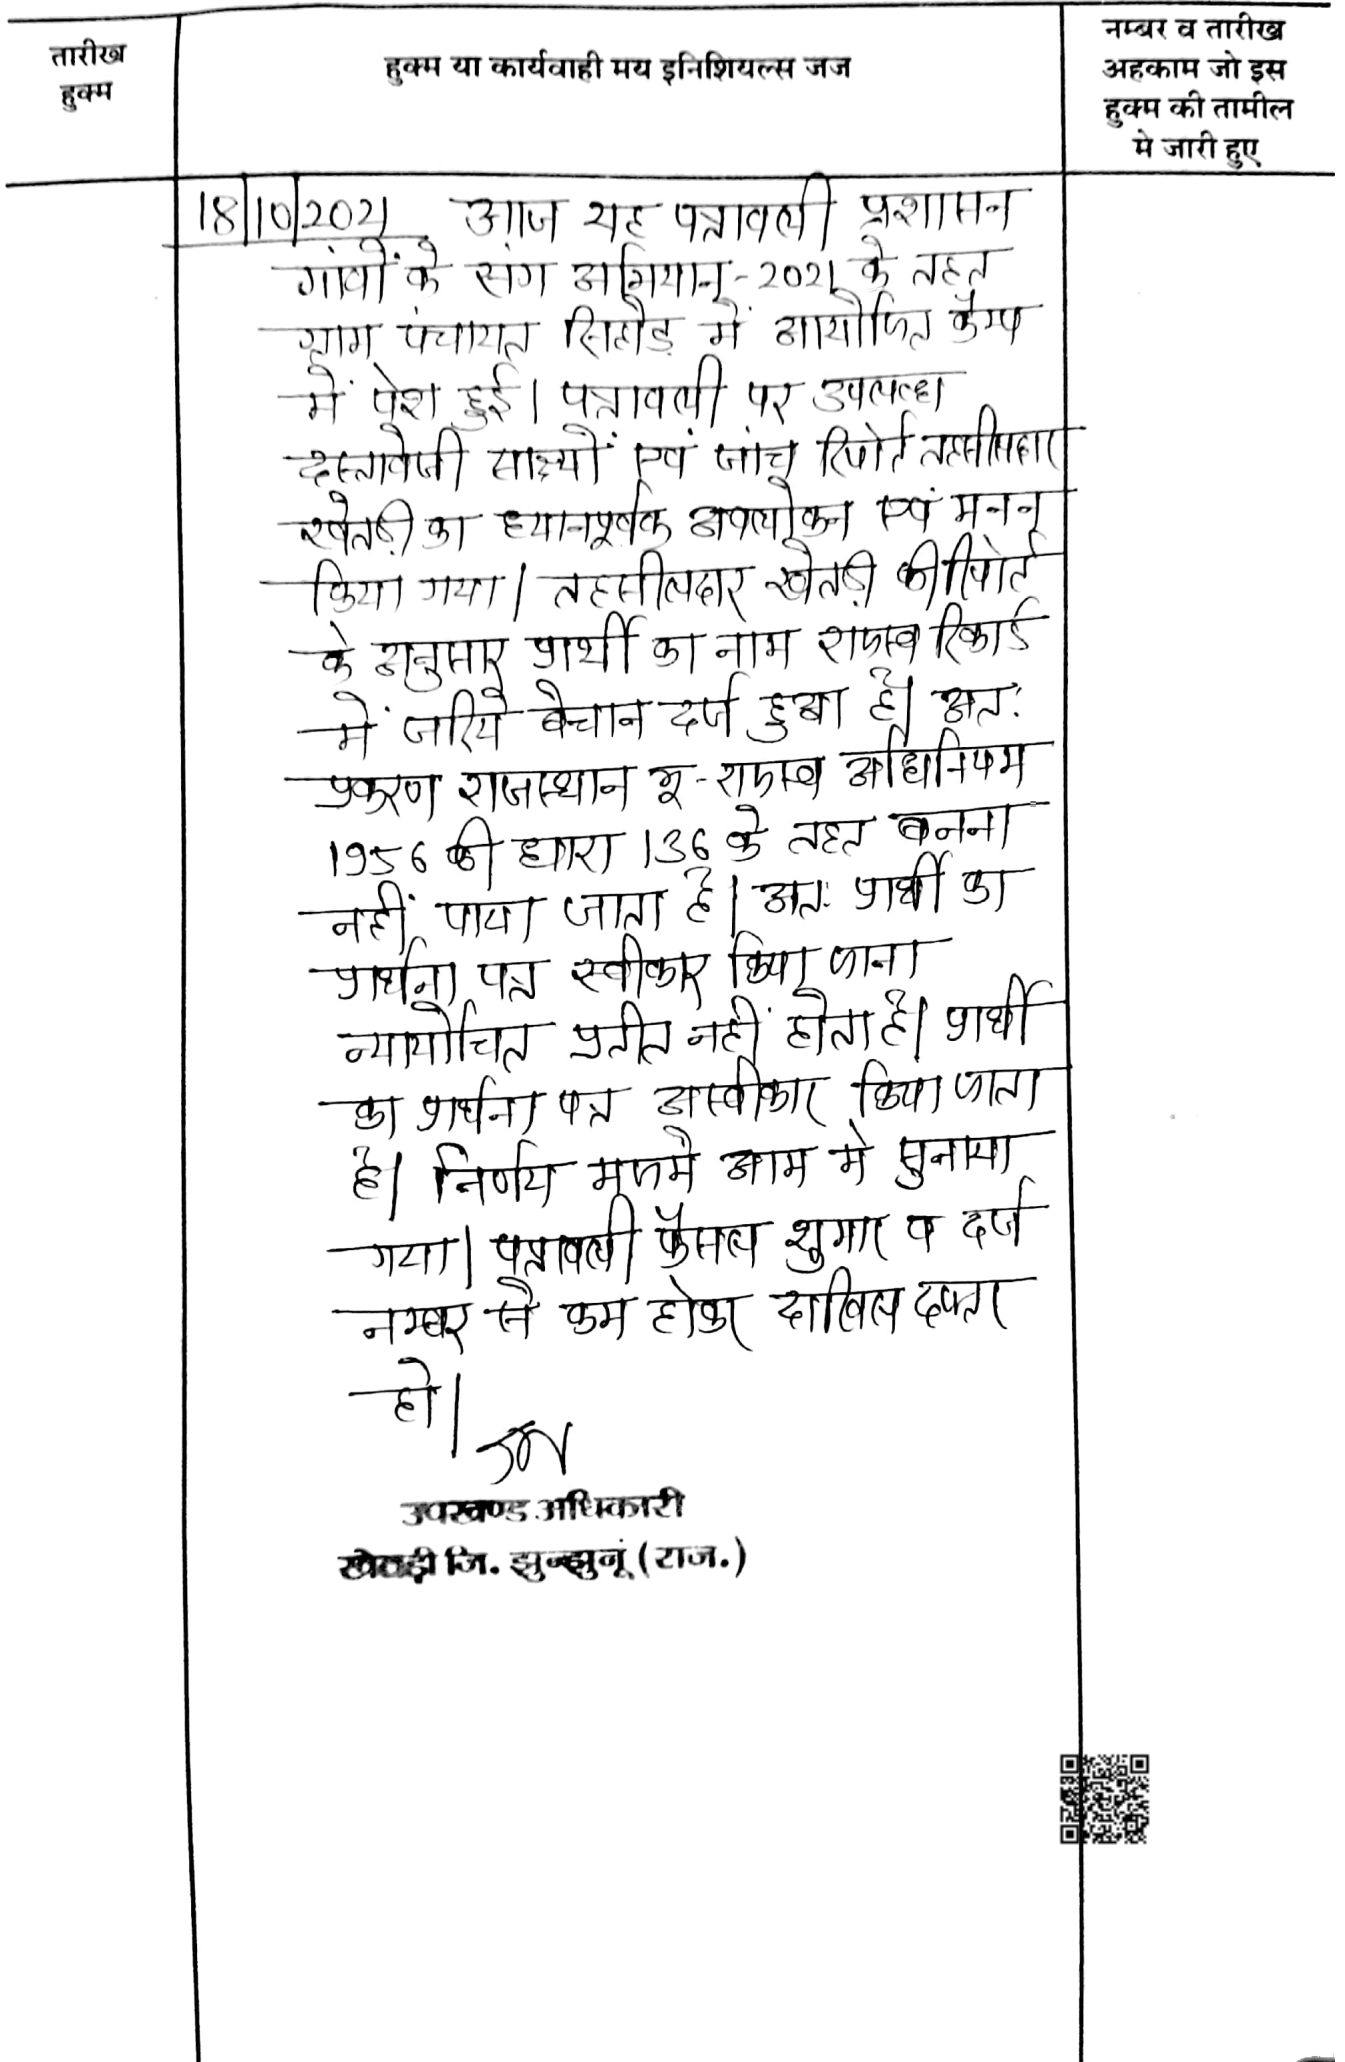 तारीख
हुक्म
हुक्म या कार्यवाही मय इनिशियल्स जज
नम्बर व तारीख
अहकाम जो इस
हुक्म की तामील
मे जारी हुए
18/10/2021 आज यह पत्रावली प्रशासन
गांवों के संग अभियान-2021 के तहत
ग्राम पंचायत सिहोड़ में आयोजित कैम्प
में पेश हुई। पत्रावली पर उपलब्ध
दस्तावेजी साक्ष्यों एवं जांच रिपोर्ट तहसीलदार
खेतड़ी का ध्यानपूर्वक अवलोकन एवं मनन
किया गया। तहसीलदार खेतड़ी की रिपोर्ट
के अनुसार प्रार्थी का नाम राजस्व रिकार्ड
में जरिये बैचान दर्ज हुआ है। अतः
प्रकरण राजस्थान भू-राजस्व अधिनियम
1956 की धारा 136 के तहत बनना
नहीं पाया जाता है। अतः प्रार्थी का
प्रार्थना पत्र स्वीकार किया जाना
न्यायोचित प्रतीत नहीं होता है। प्रार्थी
का प्रार्थना पत्र अस्वीकार किया जाता
है। निर्णय मजमे आम मे सुनाया
गया। पत्रावली फैसल शुमार व दर्ज
नम्बर से कम होकर दाखिल दफ्तर
हो।
उपखण्ड अधिकारी
खेतड़ी जि. झुन्झुनूं (राज.)